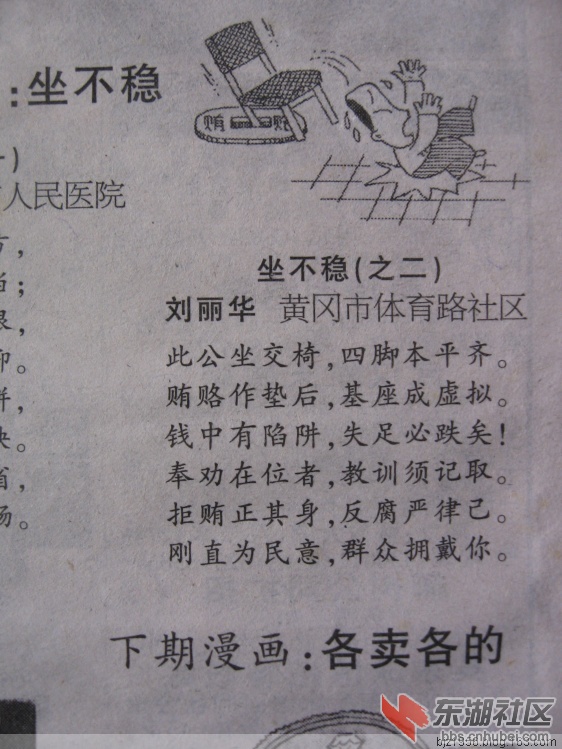 ：坐不稳
贿 赂
一)
人民医院
，
；
，
。
，
。
，
。
坐不稳(之二)
刘丽华 黄冈市体育路社区
此公坐交椅，四脚本平齐。
贿赂作垫后，基座成虚拟。
钱中有陷阱，失足必跌矣！
奉劝在位者，教训须记取。
拒贿正其身，反腐严律己。
刚直为民意，群众拥戴你。
下期漫画：各卖各的
东湖社区
bbs.cnhubei.com